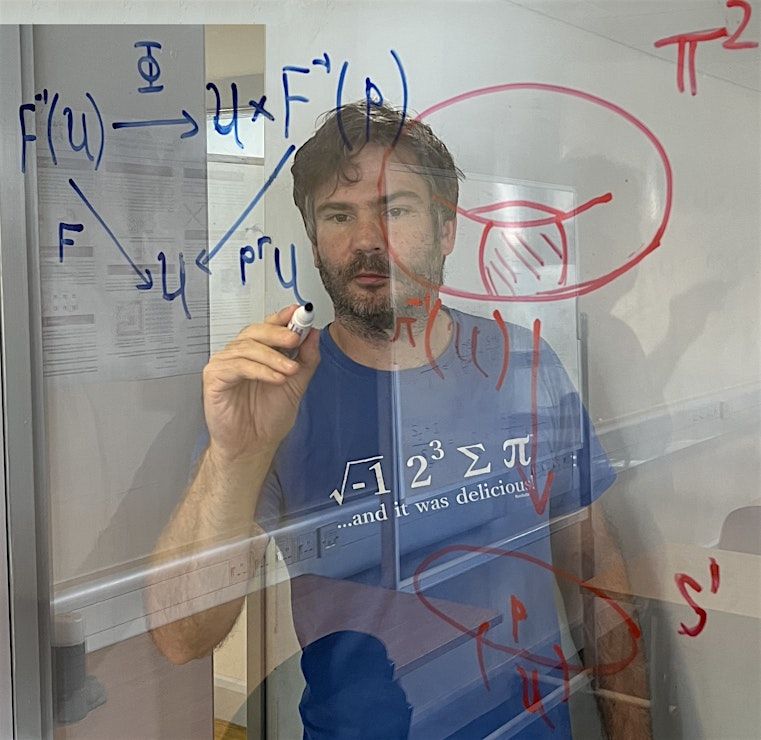 Φ
F⁻¹(U) → U × F⁻¹(p)
F
pr U
U
π²
π⁻¹(U)
√-1 2³ Σ π
...and it was delicious!
S¹
p
(U)